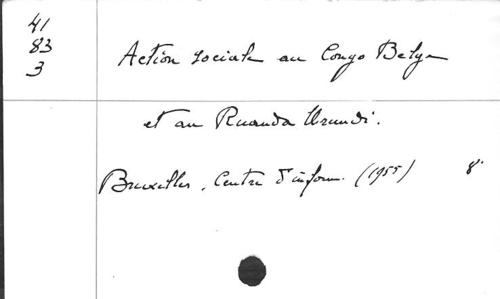 41
83
3
Action sociale au Congo Belge
et au Ruanda Urundi.
Bruxelles, Centre d'inform. (1955) 8°